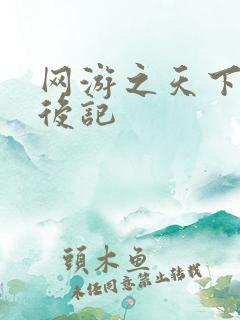 网游之天下
後記
頭木魚
未经同意禁止转载